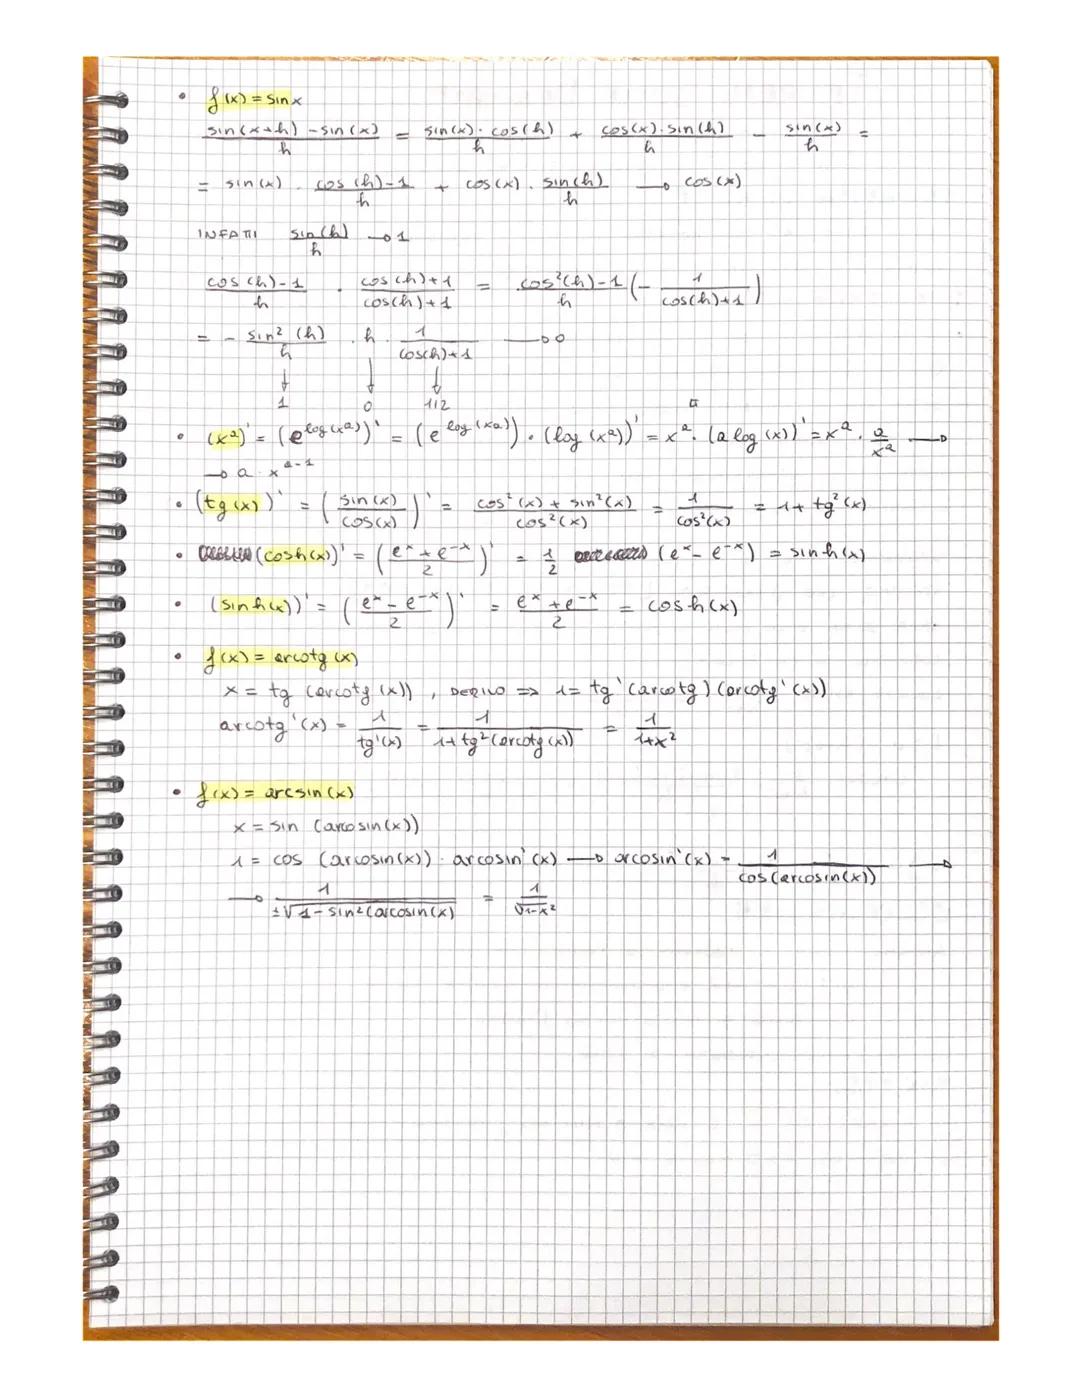 • f(x) = sin x
(sin(x+h) - sin(x))/h = (sin(x) · cos(h))/h + (cos(x) · sin(h))/h - sin(x)/h =
= sin(x) · (cos(h)-1)/h + cos(x) · sin(h)/h → cos(x)
INFATTI sin(h)/h → 1
(cos(h)-1)/h · (cos(h)+1)/(cos(h)+1) = (cos²(h)-1)/h (- 1/(cos(h)+1))
= - sin²(h)/h · h · 1/(cos(h)+1) → 0
↓ ↓ ↓
1 0 1/2
• (x^a)' = (e^log(x^a))' = (e^log(xa)) · (log(x^a))' = x^a · (a log(x))' = x^a · a/x^a →
→ a · x^(a-1)
• (tg(x))' = (sin(x)/cos(x))' = (cos²(x) + sin²(x))/cos²(x) = 1/cos²(x) = 1 + tg²(x)
• (cosh(x))' = ((e^x + e^-x)/2)' = 1/2 (e^x - e^-x) = sinh(x)
• (sinh(x))' = ((e^x - e^-x)/2)' = (e^x + e^-x)/2 = cosh(x)
• f(x) = arcotg(x)
x = tg (arcotg(x)) , DERIVO => 1 = tg'(arcotg) (arcotg'(x))
arcotg'(x) = 1/tg'(x) = 1/(1+tg²(arcotg(x))) = 1/(1+x²)
• f(x) = arcsin(x)
x = sin (arcosin(x))
1 = cos (arcosin(x)) · arcosin'(x) → arcosin'(x) = 1/cos(arcosin(x)) →
→ 1/(±√(1-sin²(arcosin(x)) = 1/√(1-x²)